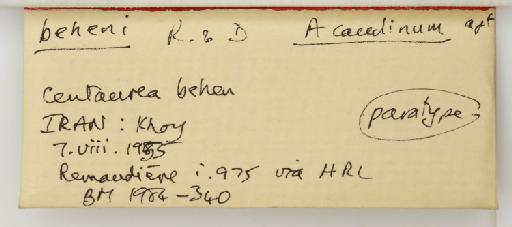 beheni R. & D Acaudinum apt
Centaurea behen
IRAN : Khoy
paratype
7.viii.1955
Remaudière i.975 via HRL
BM 1984-340